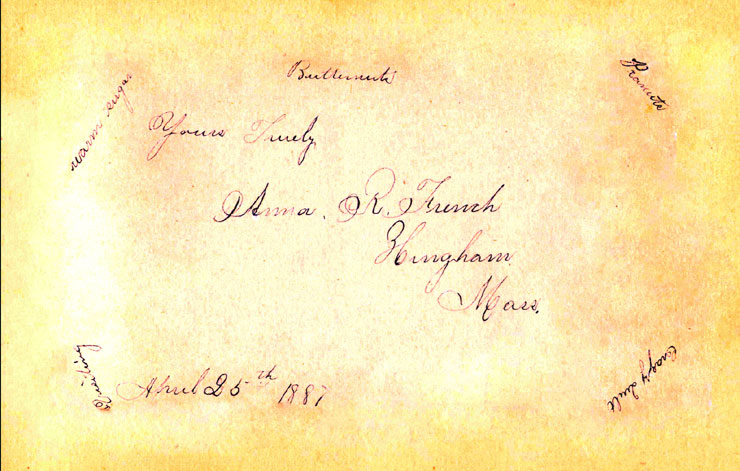 Butternuts
warm sugar
Yours Truely
Anna. R. French
Hingham
Mass.
April 25th 1887
Crazy Quilt